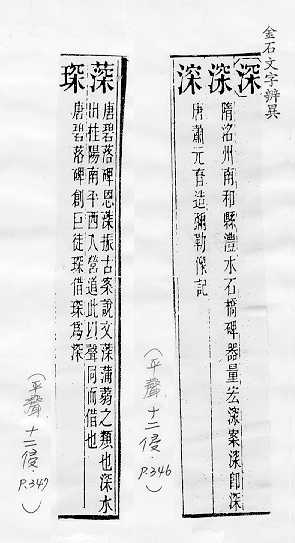 金石文字辨異
深
滦隋洛州南和縣澧水石橋碑器量宏滦案滦卽深
深唐蕭元眘造彌勒像記
(平聲 十二侵 P.346)
蒤唐碧落碑恩蒤振古案說文蒤蒲蒻之類也深水
出桂陽南平西入營道此以聲同而借也
琛唐碧落碑創巨徒琛借琛爲深
(平聲 十二侵 P.347)